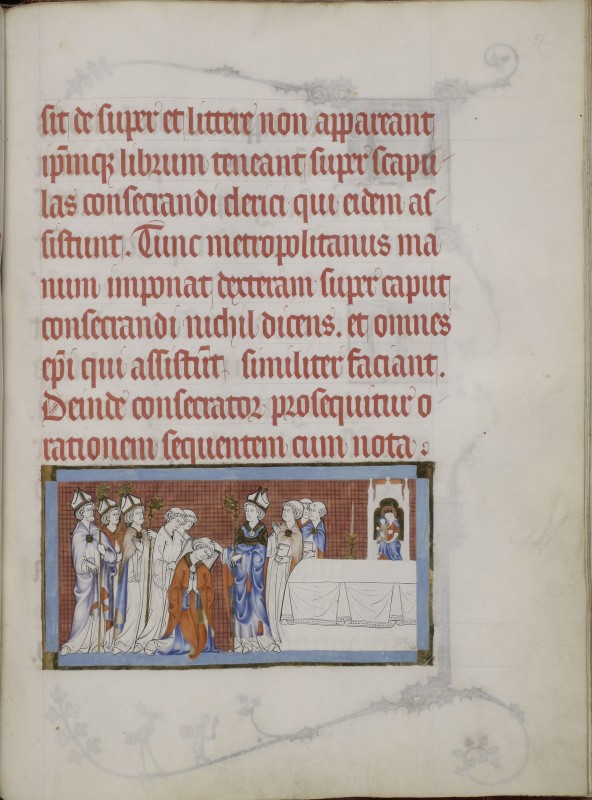 sit de super et littere non appareant
ip̄mq; librum teneant super scapu-
las consecrandi clerici qui eidem as-
sistunt. Tunc metropolitanus ma
num imponat dexteram super caput
consecrandi nichil dicens. et omnes
ep̄i qui assistūt similiter faciant.
Deinde consecrator prosequitur o
rationem sequentem cum nota: